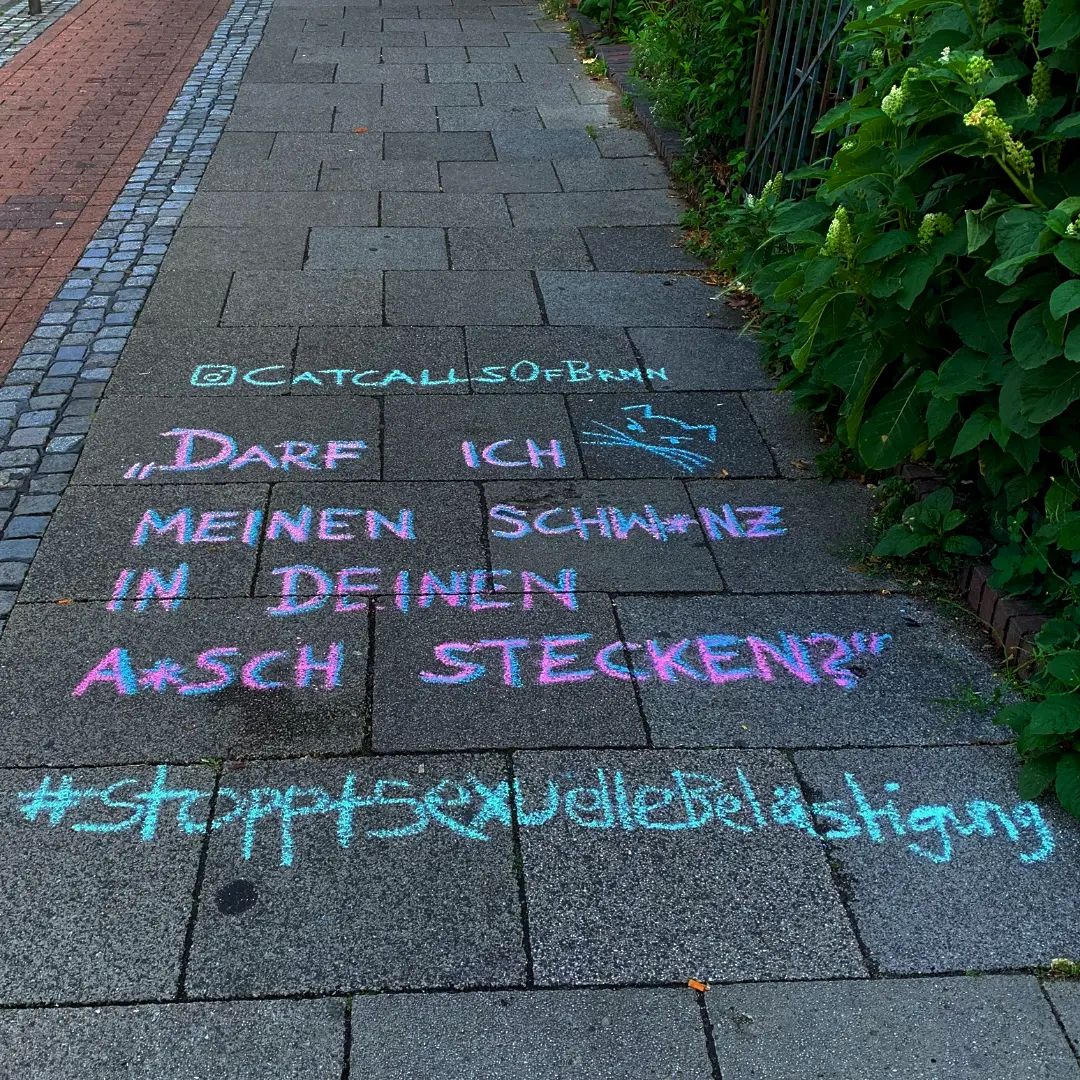 @CatcallsOfBrmn
„Darf ich
meinen Schw*nz
in deinen
A*sch stecken?“
#stopptsexuelleBelästigung